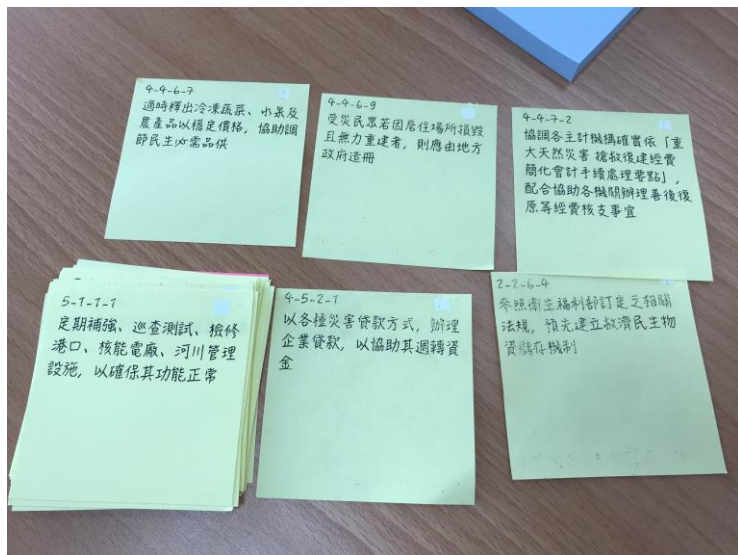 4-4-6-7
適時釋出冷凍蔬菜、水果及
農產品以穩定價格，協助調
節民生必需品供
4-4-6-9
受災民眾若因居住場所損毀
且無力重建者，則應由地方
政府造冊
4-4-7-2
協調各主計機構確實依「重
大天然災害搶救復建經費
簡化會計手續處理要點」，
配合協助各機關辦理善後復
原等經費核支事宜
5-1-1-1
定期補強、巡查測試、檢修
港口、核能電廠、河川管理
設施，以確保其功能正常
4-5-2-1
以各種災害貸款方式，辦理
企業貸款，以協助其週轉資
金
2-2-6-4
參照衛生福利部訂定之相關
法規，預先建立救濟民生物
資儲存機制